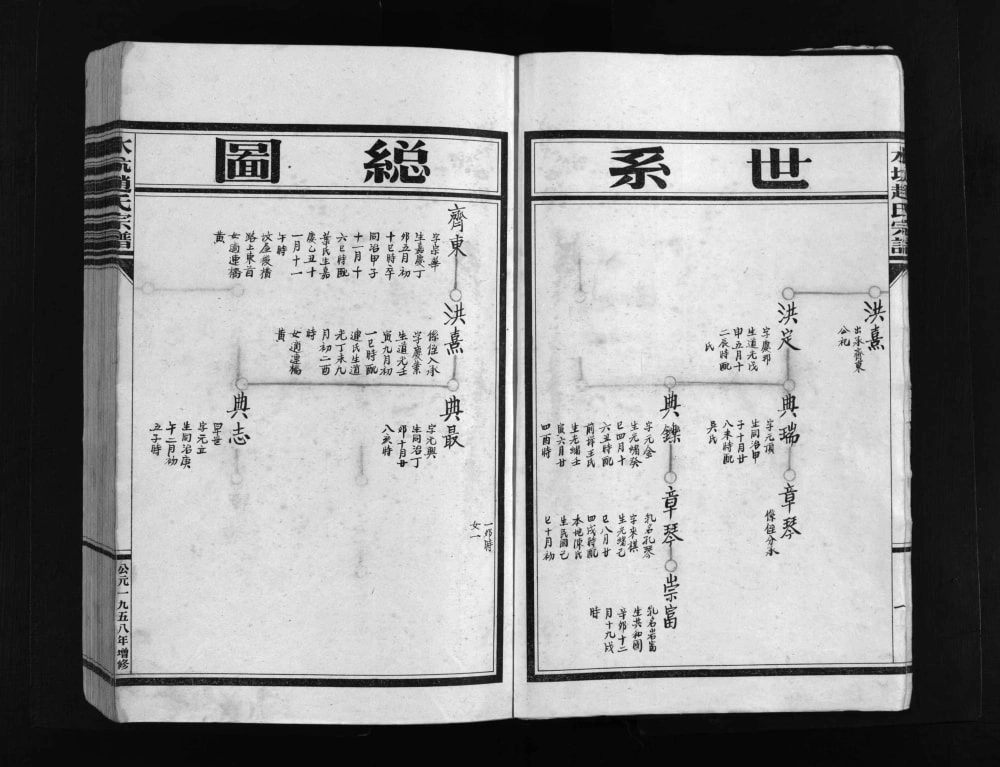 世系
洪熹
出承齊東
公祀
洪定
字慶邦
生道光戊
申五月十
二辰時配
氏
典瑞
字元頂
生同治甲
子十月廿
八未時配
吳氏
章琴
係侄分承
典鑠
字元金
生光緒癸
巳四月十
六丑時配
前譚王氏
生光緒壬
寅六月廿
四酉時
章琴
乳名孔琴
字來祺
生光緒己
巳八月廿
四戌時配
本地陳氏
生民國乙
巳十月初
崇富
乳名岩富
生共和國
辛卯十二
月十九戌
時
一
総圖
一卯時
女一
齊東
字宗華
生嘉慶丁
卯五月初
十巳時卒
同治甲子
十一月十
六巳時配
葉氏生嘉
慶乙丑十
一月十一
午時
路上東首
女適連橋
黃
洪熹
係侄入承
字慶業
生道光壬
寅九月初
一巳時配
連氏生道
光丁未九
月初二酉
時
女適連橋
黃
典最
字元興
生同治丁
卯十月廿
八亥時
典志
早世
字元立
生同治庚
午二月初
五子時
趙氏宗譜
公元一九五八年增修